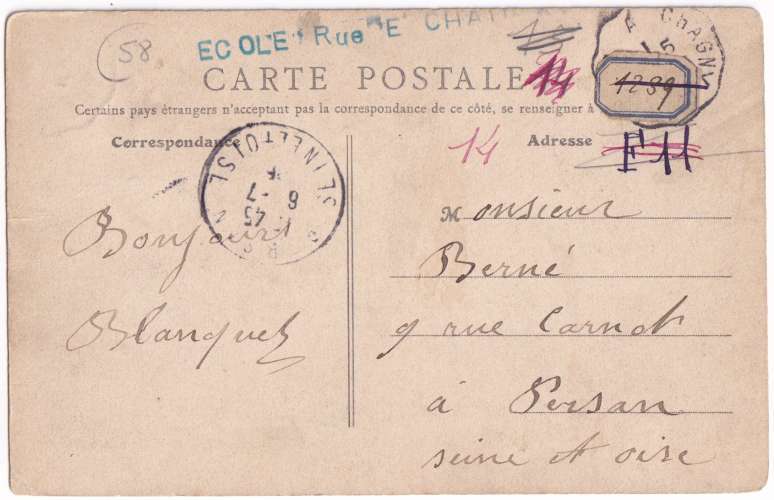 58
ECOLE Rue
CHAGNY
15
1239
CARTE POSTALE
Certains pays étrangers n'acceptant pas la correspondance de ce côté, se renseigner à
Correspondance
14
Adresse
F11
SEINE ET OISE
7 - 6
45
Bonjour
Blanquet
Monsieur
Berné
9 rue Carnot
à Persan
seine et oise